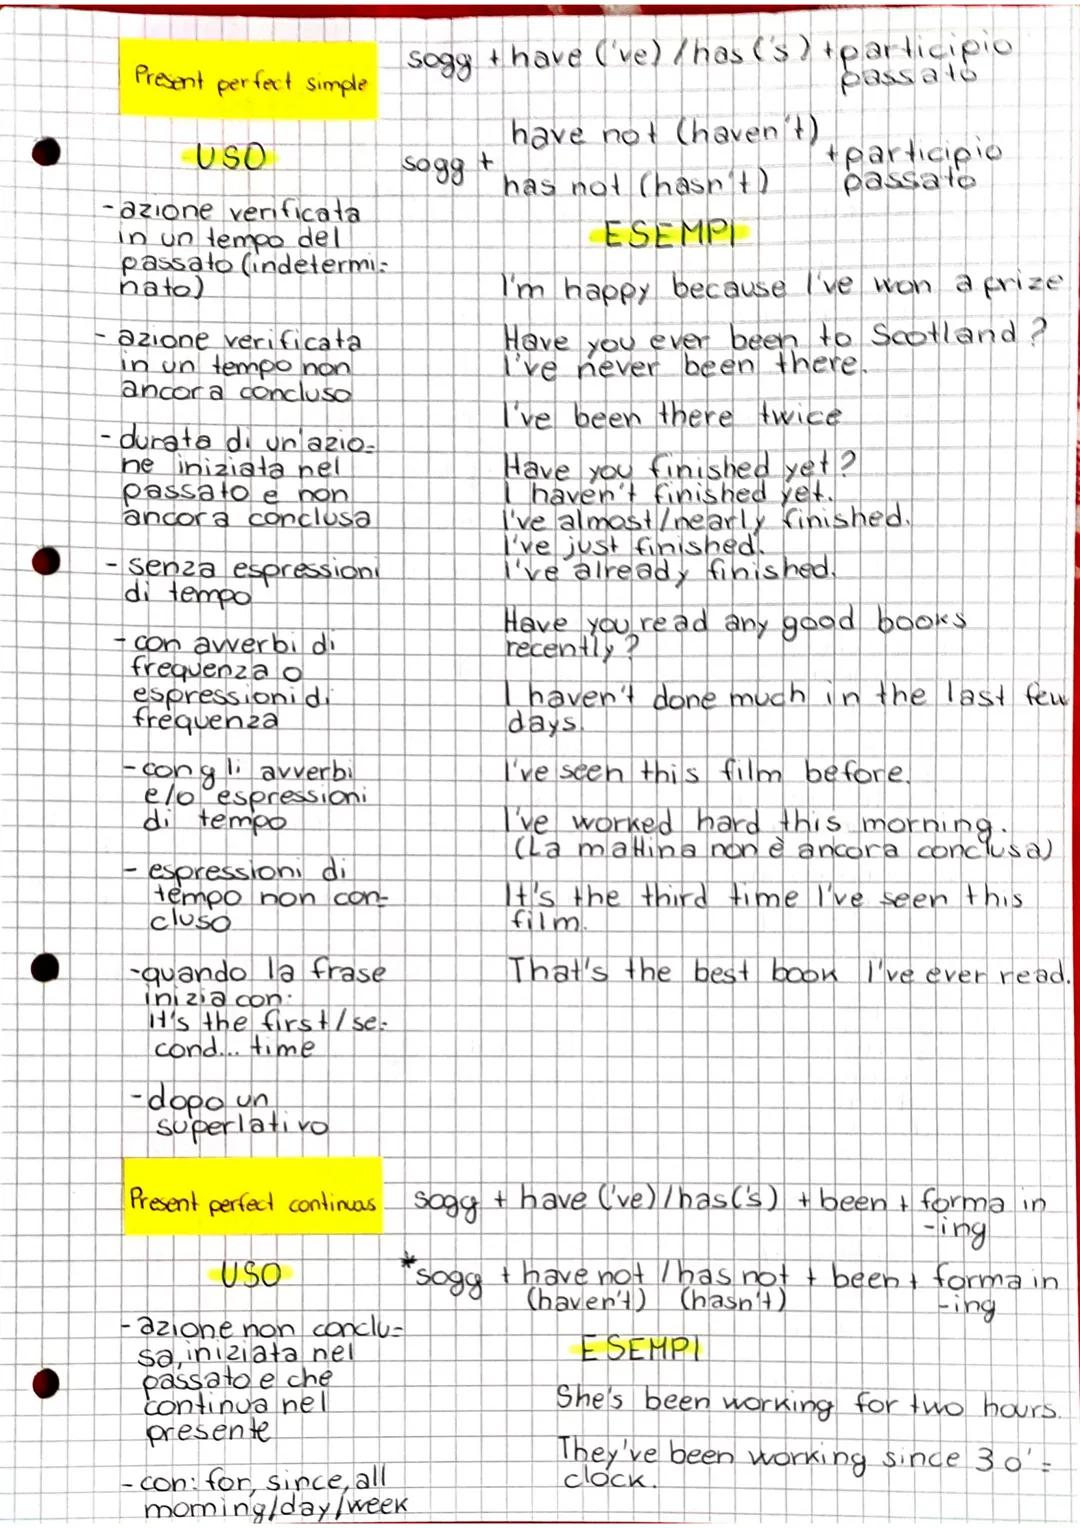 Present perfect simple
sogg + have ('ve) / has ('s) + participio
passato
have not (haven't)
sogg +
+ participio
has not (hasn't)
passato
USO
- azione verificata
in un tempo del
passato (indetermi=
nato)
- azione verificata
in un tempo non
ancora concluso
- durata di un'azio=
ne iniziata nel
passato e non
ancora conclusa
- senza espressioni
di tempo
- con avverbi di
frequenza o
espressioni di
frequenza
- con gli avverbi
e/o espressioni
di tempo
- espressioni di
tempo non con=
cluso
- quando la frase
inizia con:
it's the first/se=
cond... time
- dopo un
superlativo
ESEMPI
I'm happy because I've won a prize
Have you ever been to Scotland?
I've never been there.
I've been there twice
Have you finished yet?
I haven't finished yet.
I've almost/nearly finished.
I've just finished.
I've already finished.
Have you read any good books
recently?
I haven't done much in the last few
days.
I've seen this film before.
I've worked hard this morning.
(La mattina non è ancora conclusa)
It's the third time I've seen this
film.
That's the best book I've ever read.
Present perfect continuos
sogg + have ('ve) / has ('s) + been + forma in
-ing
*sogg + have not / has not + been + forma in
(haven't) (hasn't) -ing
USO
- azione non conclu=
sa, iniziata nel
passato e che
continua nel
presente
- con: for, since, all
morning/day/week
ESEMPI
She's been working for two hours.
They've been working since 3 o'=
clock.